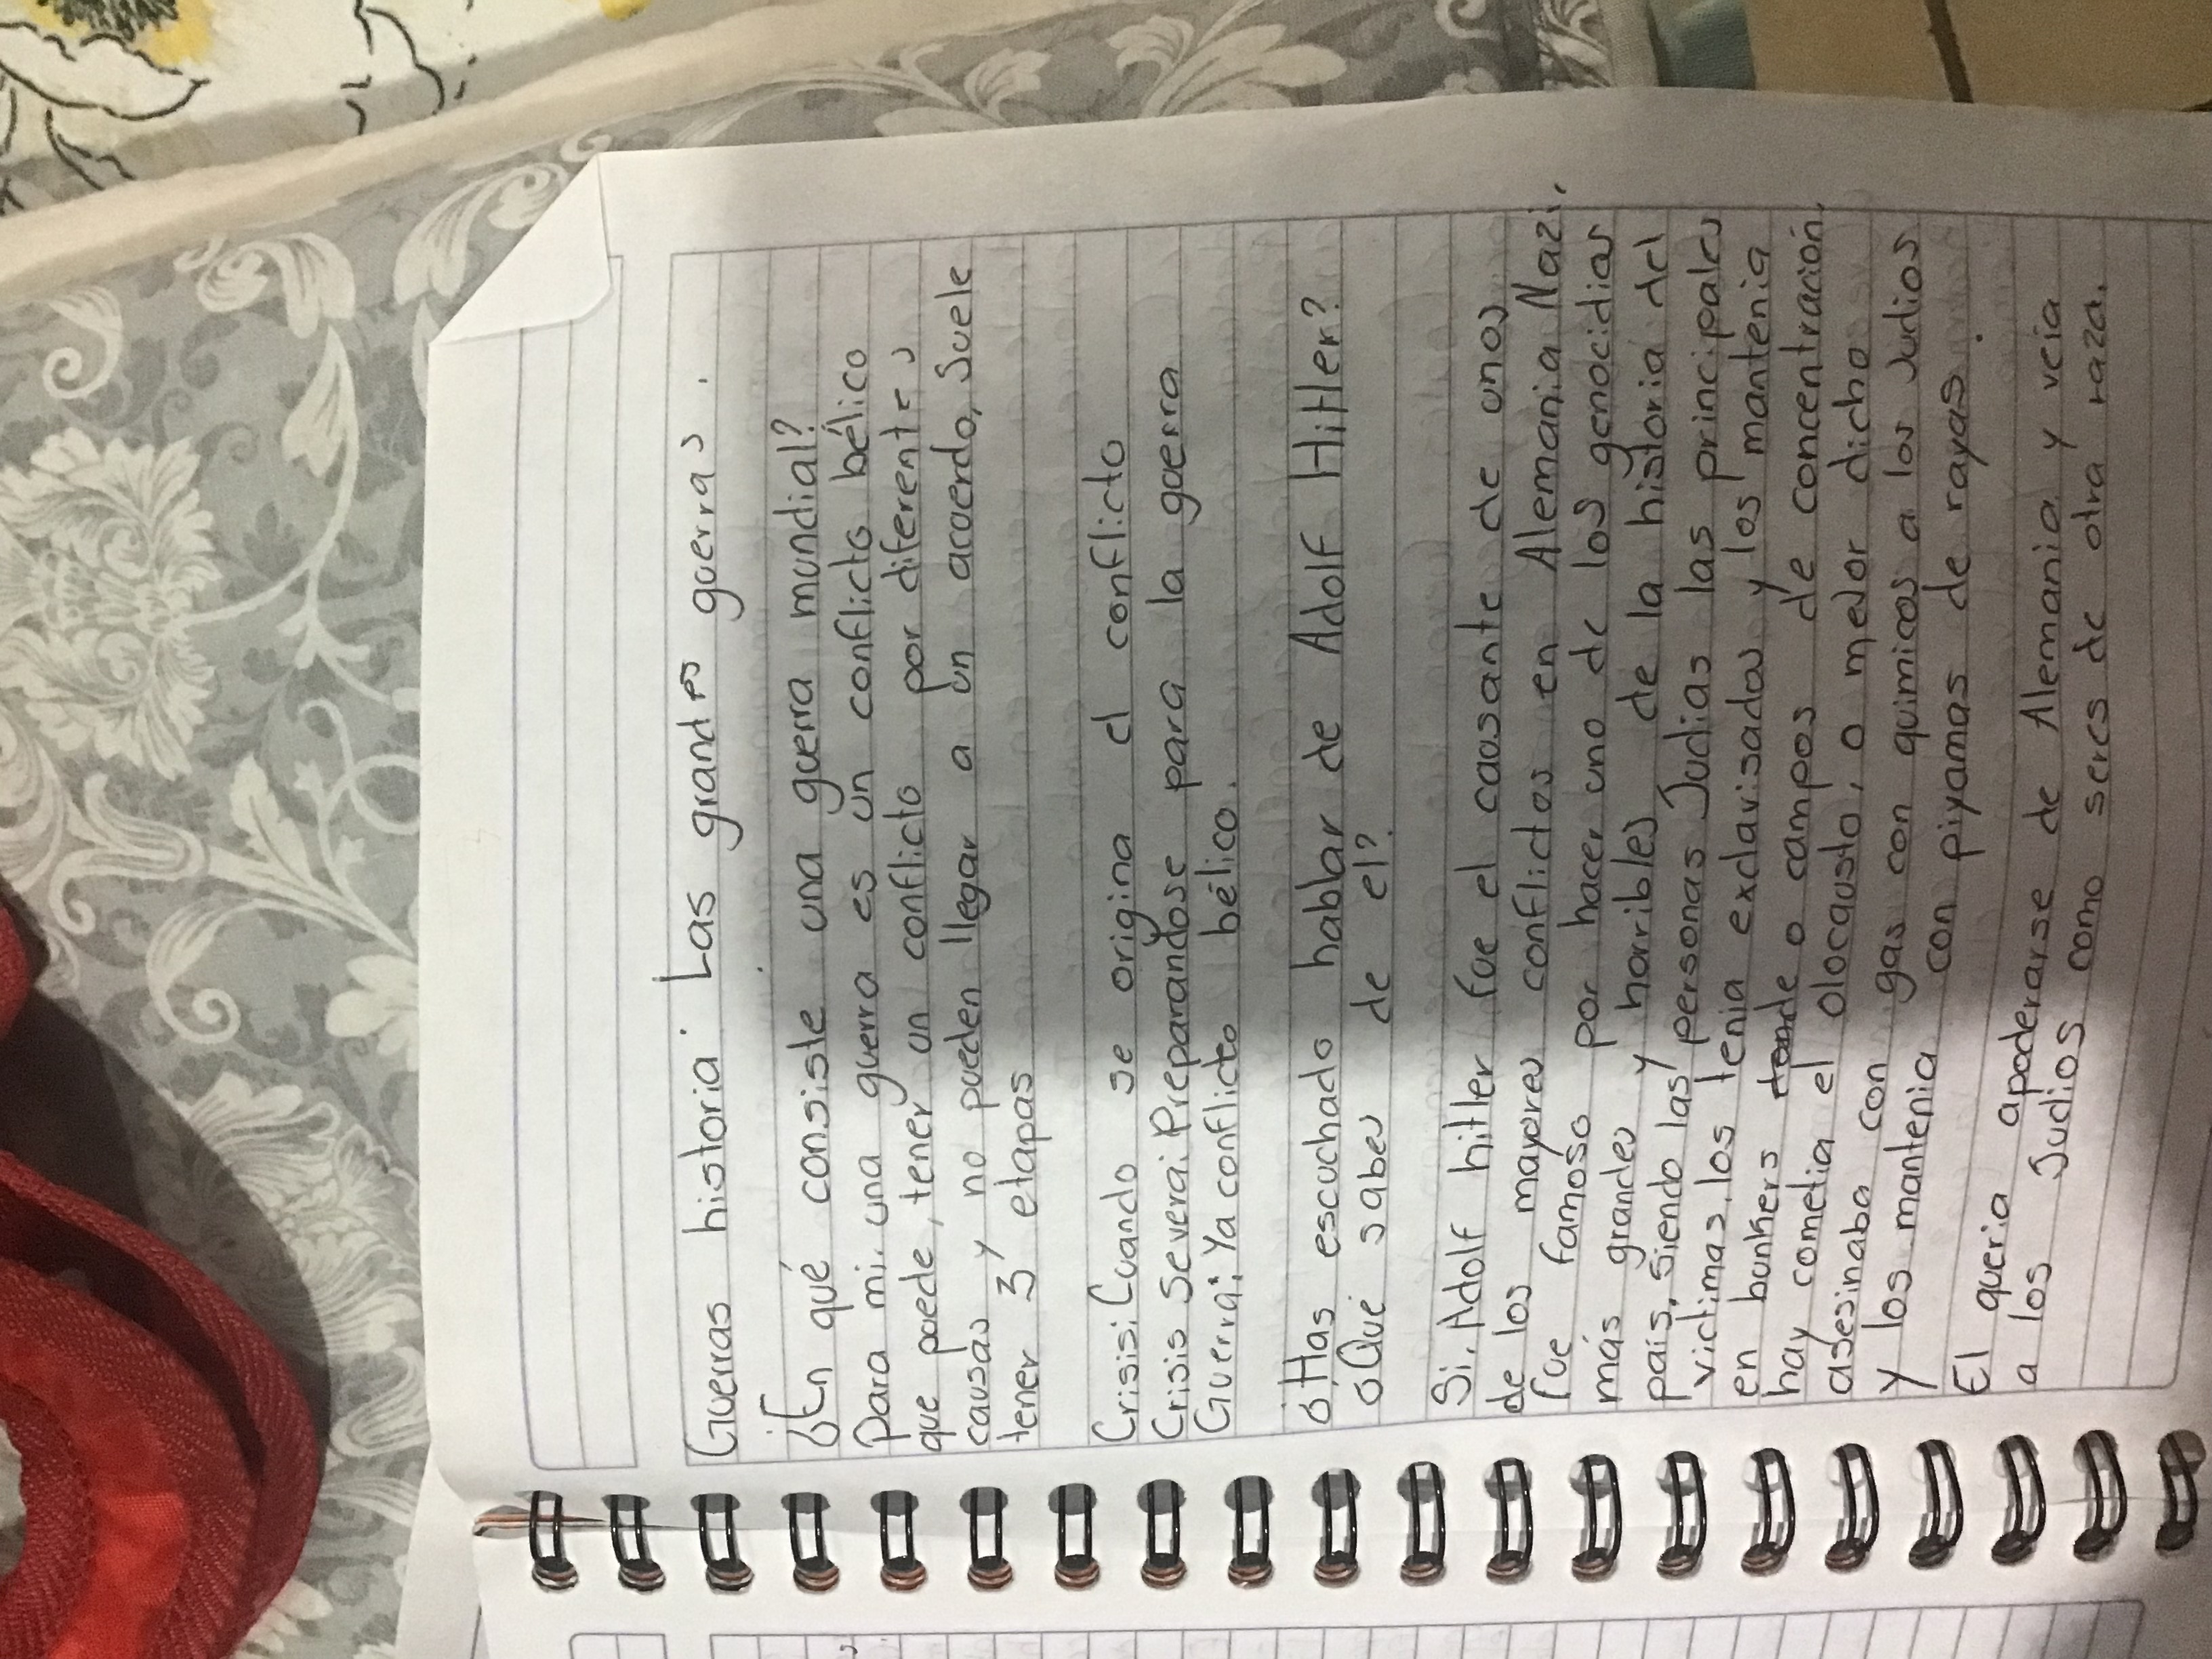 Guerras historia: Las grandes guerras.
¿En qué consiste una guerra mundial?
Para mi, una guerra es un conflicto bélico
que puede, tener un conflicto por diferentes
causas y no pueden llegar a un acuerdo, Suele
tener 3 etapas
Crisis: Cuando se origina el conflicto
Crisis Severa: Preparandose para la guerra
Guerra: Ya conflicto bélico.
¿Has escuchado hablar de Adolf Hitler?
¿Qué sabes de el?
Si, Adolf hitler fue el causante de unos
de los mayores conflictos en Alemania Nazi,
fue famoso por hacer uno de los genocidias
más grandes y horribles de la historia del
pais, siendo las personas Judias las principales
victimas, los tenia exclavisados y los mantenia
en bunkers donde o campos de concentración,
hay cometia el olocausto, o mejor dicho
asesinaba con gas con quimicos a los Judios
y los mantenia con piyamas de rayas.
El queria apoderarse de Alemania y veia
a los Judios como seres de otra raza.